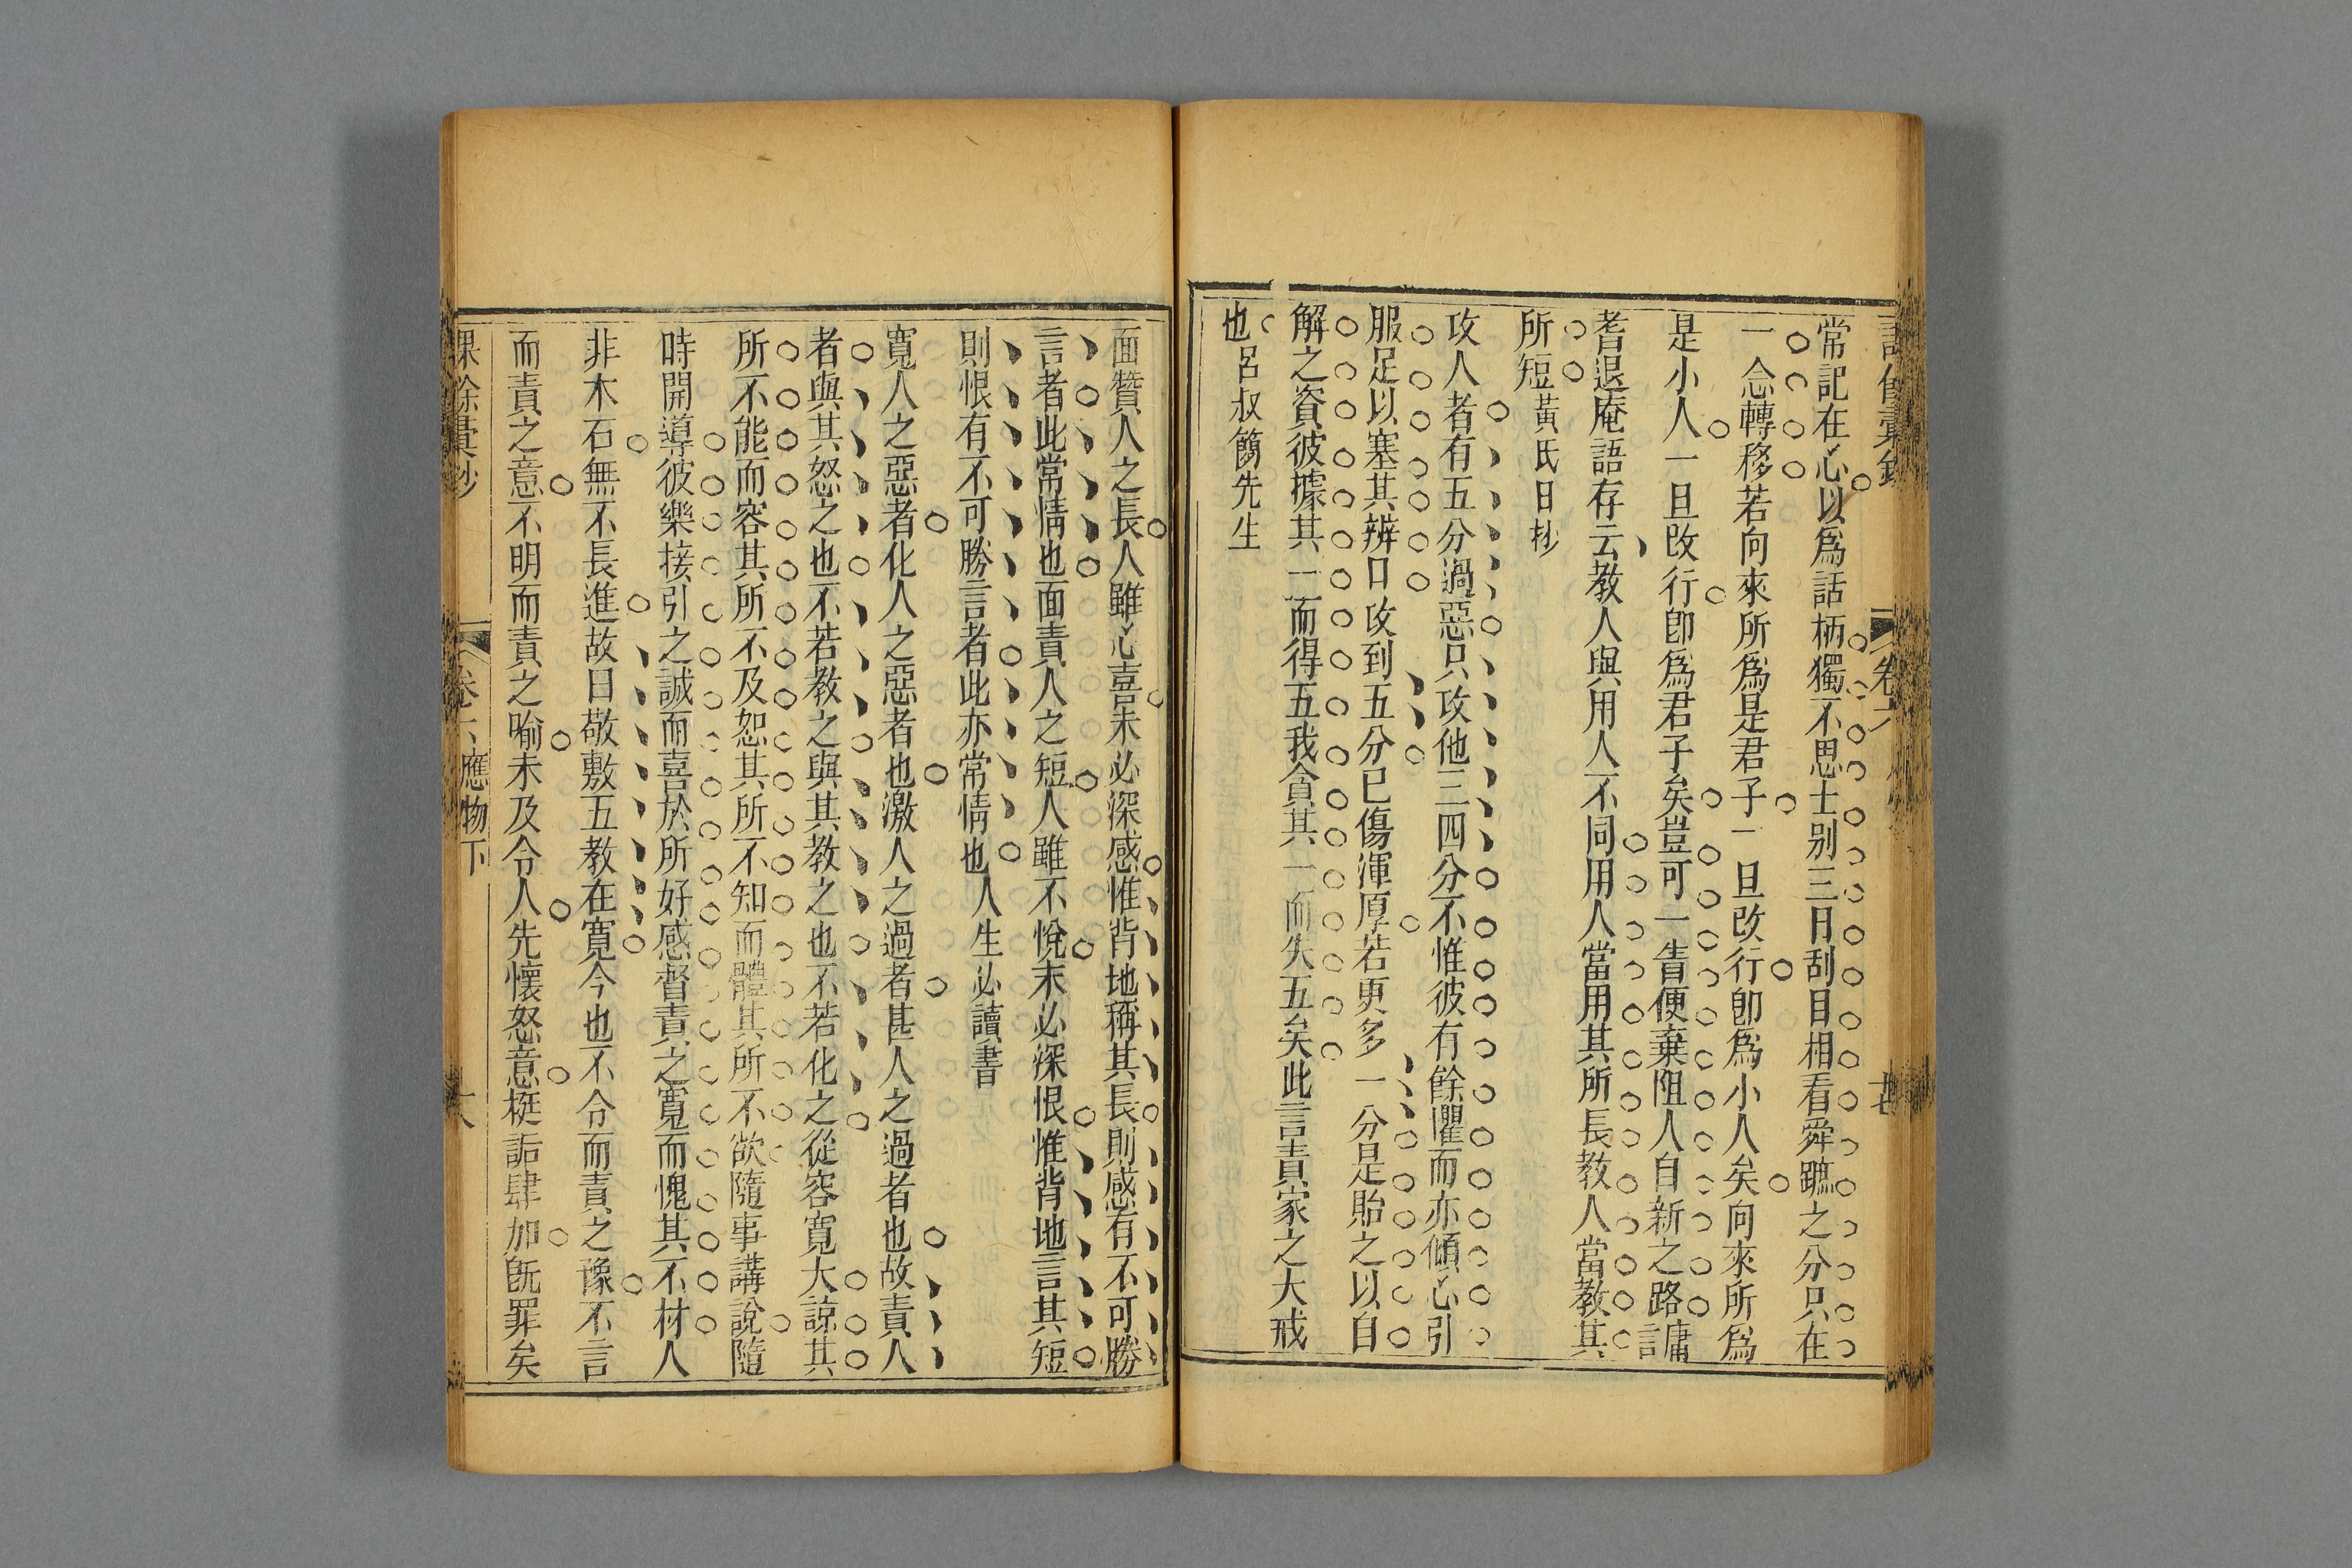 常記在心以爲話柄獨不思士别三日刮目相看舜蹠之分只在
一念轉移若向來所爲是君子一旦改行卽爲小人矣向來所爲
是小人一旦改行卽爲君子矣豈可一眚便棄阻人自新之路譾
耆退庵語存云教人與用人不同用人當用其所長教人當教其
所短黃氏日抄
攻人者有五分過惡只攻他三四分不惟彼有餘懼而亦傾心引
服足以塞其辨口攻到五分已傷渾厚若更多一分是貽之以自
解之資彼據其一而得五我貪其一而失五矣此言責家之大戒
也呂叔簡先生
卷六
面贊人之長人雖心喜未必深感惟背地稱其長則感有不可勝
言者此常情也面責人之短人雖不悅未必深恨惟背地言其短
則恨有不可勝言者此亦常情也人生必讀書
寬人之惡者化人之惡者也激人之過者甚人之過者也故責人
者與其怒之也不若教之與其教之也不若化之從容寬大諒其
所不能而容其所不及恕其所不知而體其所不欲隨事講說隨
時開導彼樂接引之誠而喜於所好感督責之寬而愧其不材人
非木石無不長進故曰敬敷五教在寬今也不令而責之豫不言
而責之意不明而責之喻未及令人先懷怒意梃詬肆加旣罪矣
課餘彙鈔
應物下